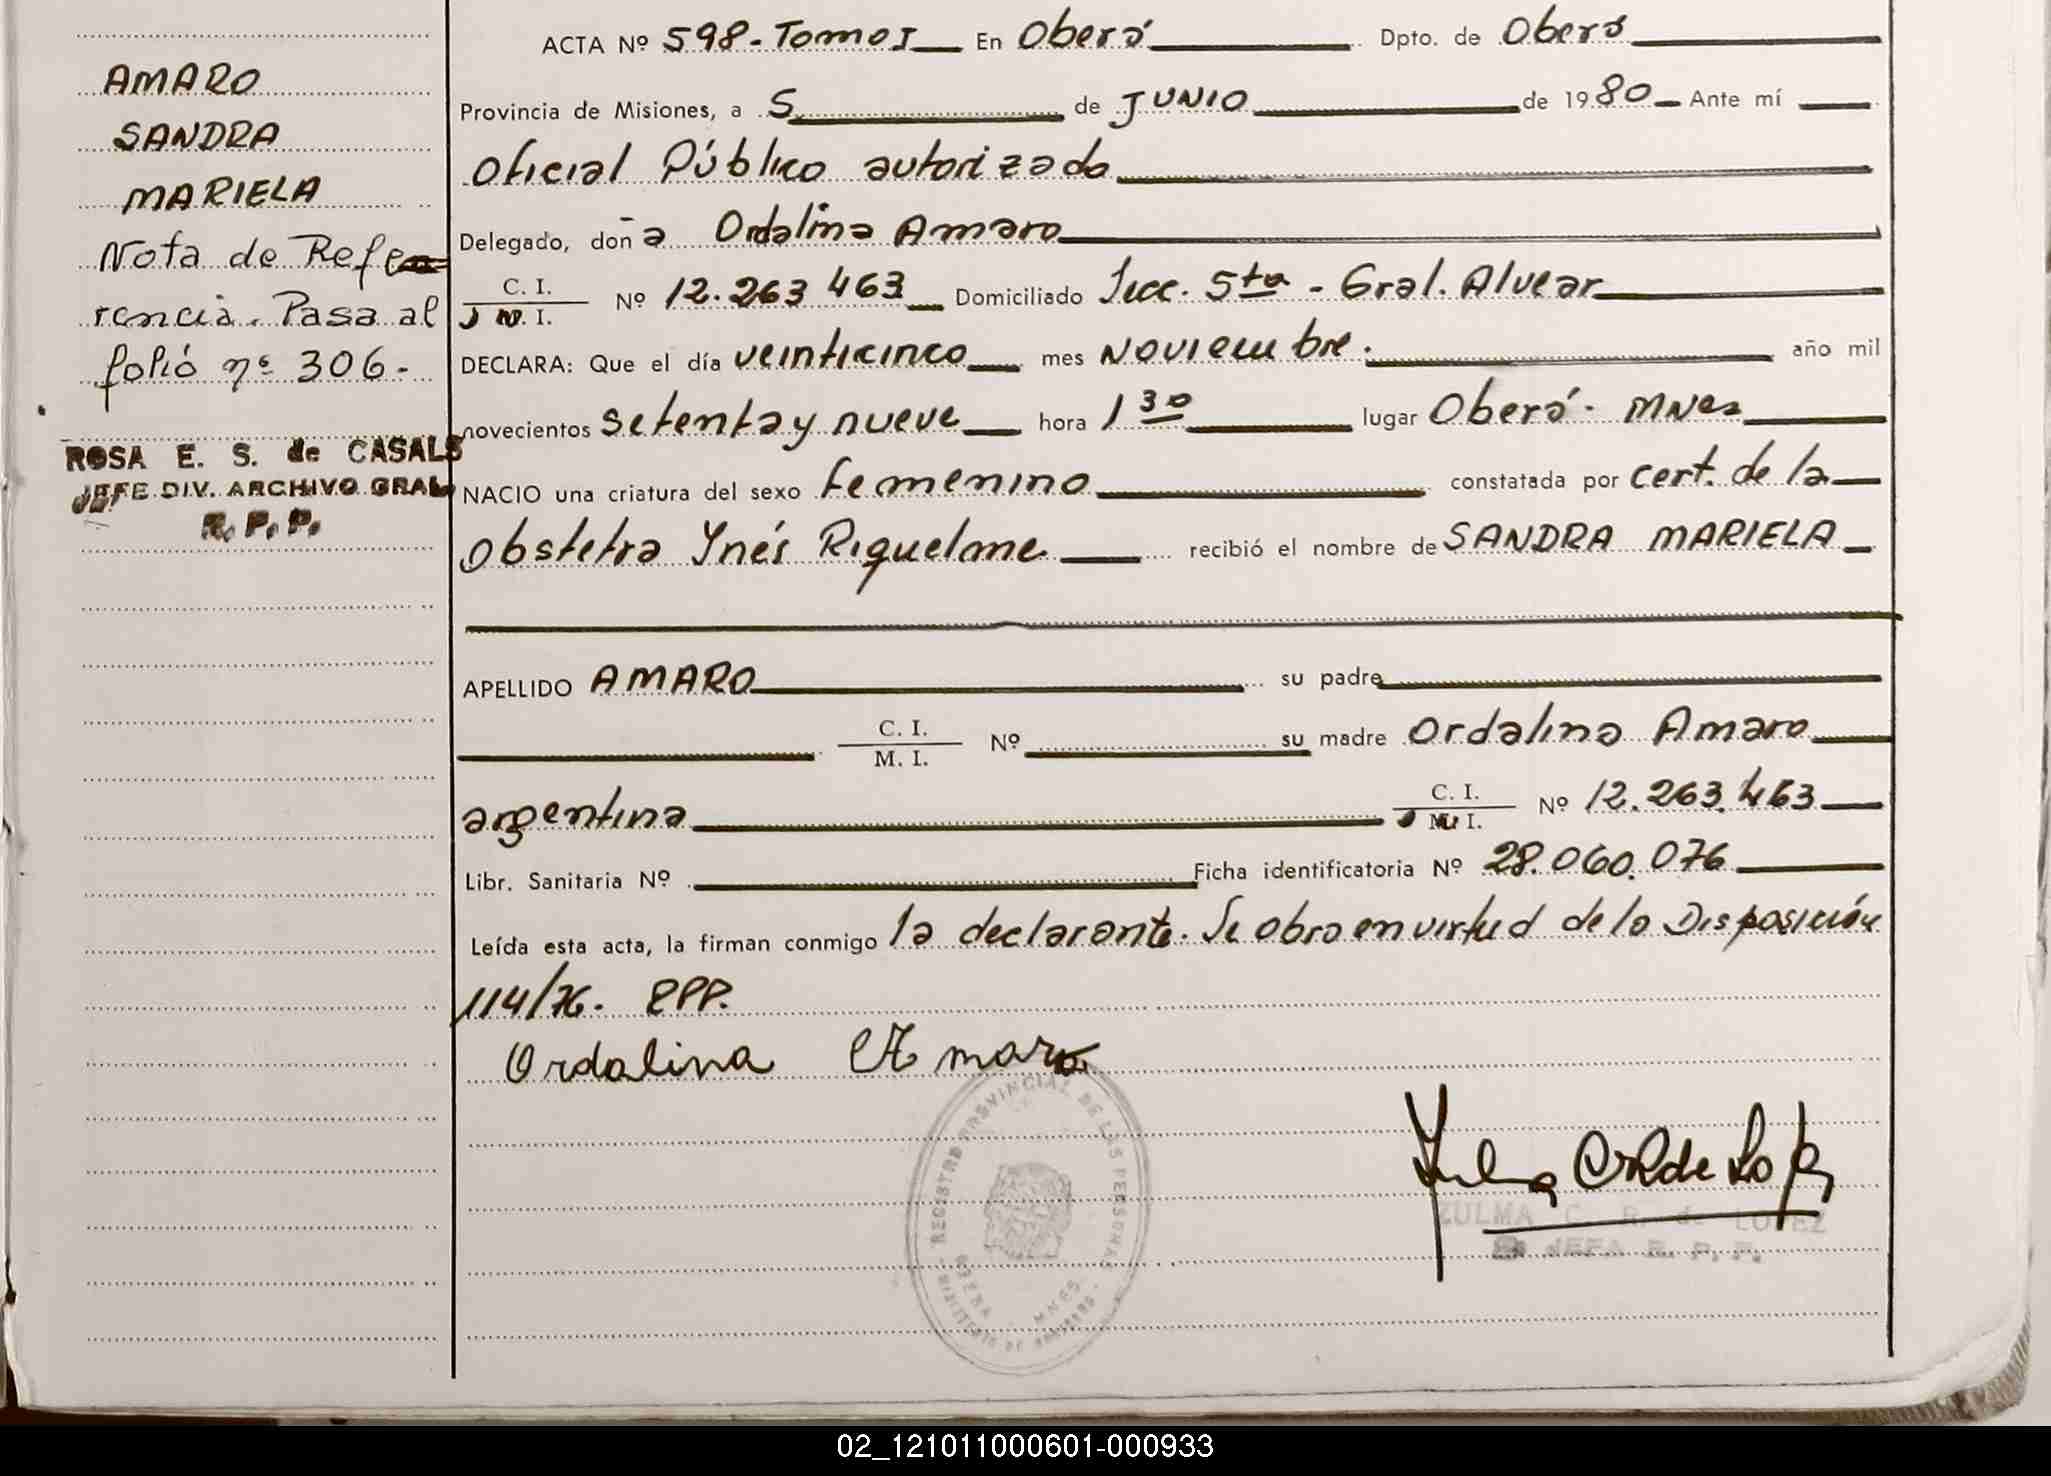 AMARO
SANDRA
MARIELA
Nota de Refe
rencia. Pasa al
folió nº 306.-
ROSA E. S. de CASALS
JEFE DIV. ARCHIVO GRAL
R. P. P.
ACTA Nº 598-Tomo I En Oberá Dpto. de Oberá
Provincia de Misiones, a 5 de JUNIO de 1980 Ante mí
Oficial Público autorizado
Delegado, doña Ordalina Amaro
C. I.
Nº 12.263.463 Domiciliado Secc. 5ta - Gral. Alvear
I.
DECLARA: Que el día veinticinco mes Noviembre. año mil
novecientos setenta y nueve hora 1 30 lugar Oberá- MNes
NACIO una criatura del sexo femenino constatada por cert. de la
Obstetra Ynés Riquelme recibió el nombre de SANDRA MARIELA
APELLIDO AMARO su padre
C. I.
M. I. Nº su madre Ordalina Amaro
argentina C. I. Nº 12.263.463
I.
Libr. Sanitaria Nº Ficha identificatoria Nº 28.060.076
Leída esta acta, la firman conmigo la declarante. Se obro en virtud de la Disposición
114/76. RPP.
Ordalina Amaro
REGISTRO PROVINCIAL DE LAS PERSONAS
MINISTERIO DE GOBIERNO
OBERA - MNES
ZULMA C. R. de LOPEZ
JEFA R. P. P.
02_121011000601-000933